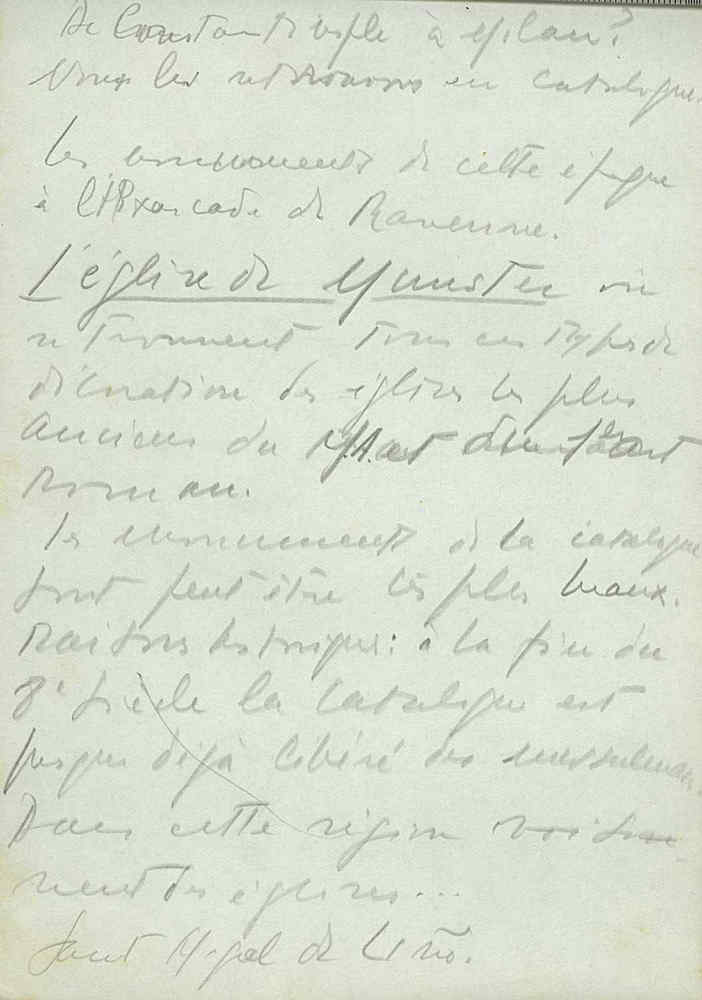 De Constantinople à Milan?
Nous les retrouvons en Catalogne.
Les monuments de cette époque
à l'Exarcade de Ravenne.
L'église de Munster où
retrouvent tous ces types de
décoration des églises les plus
anciens du art
Roman.
Les monuments de la Catalogne
sont peut être les plus beaux.
Raisons historiques: à la fin du
8e siècle la Catalogne est
presque déjà libéré des musulmans.
Dans cette région
nent des églises...
Sant Migal de Liño.